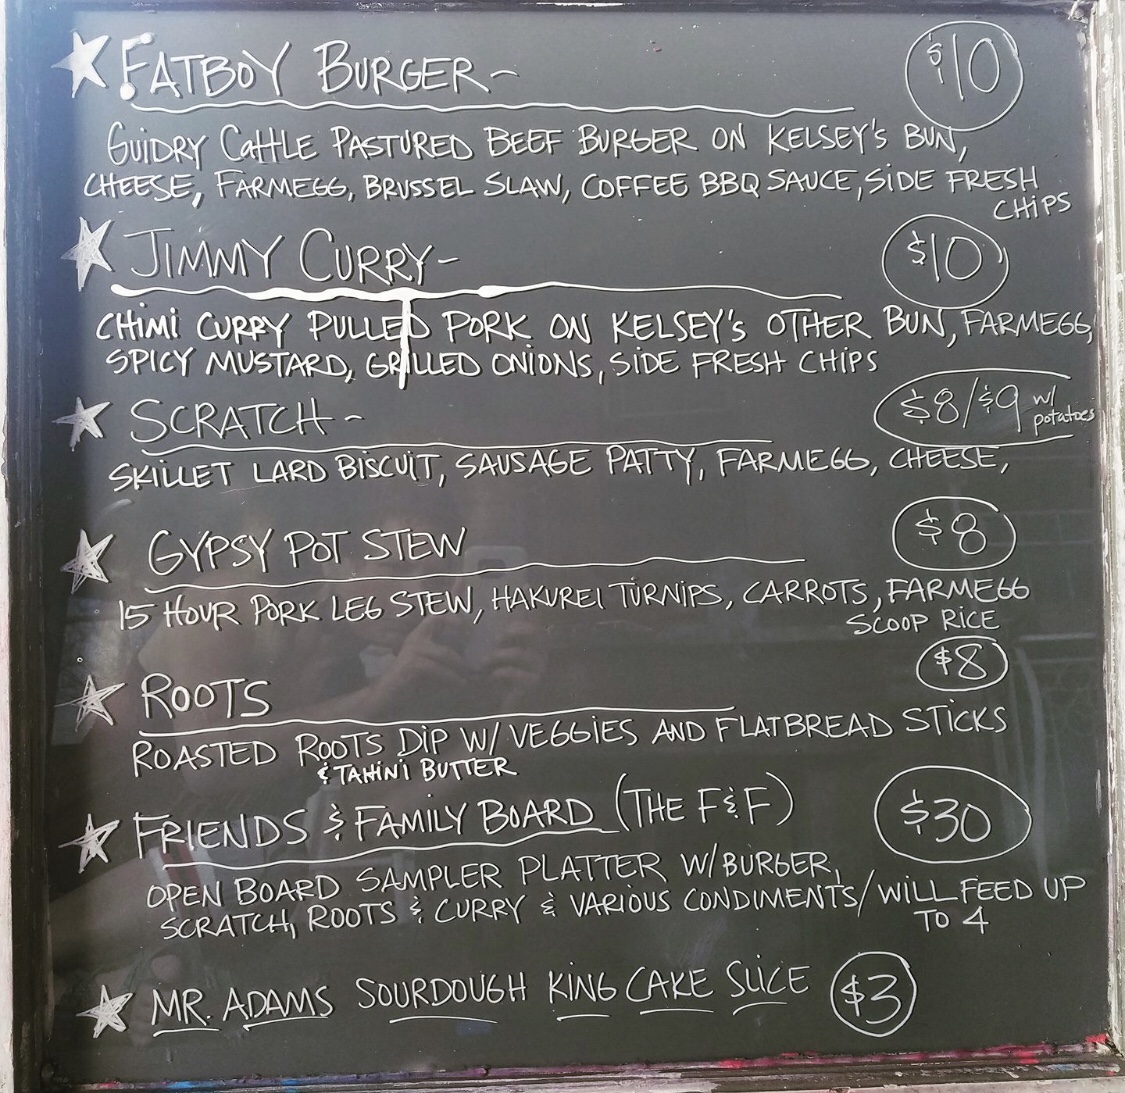 FATBOY BURGER- $10
GUIDRY CATTLE PASTURED BEEF BURGER ON KELSEY'S BUN,
CHEESE, FARMEGG, BRUSSEL SLAW, COFFEE BBQ SAUCE, SIDE FRESH
CHIPS
JIMMY CURRY- $10
CHIMI CURRY PULLED PORK ON KELSEY'S OTHER BUN, FARMEGG,
SPICY MUSTARD, GRILLED ONIONS, SIDE FRESH CHIPS
SCRATCH- $8/$9 w/ potatoes
SKILLET LARD BISCUIT, SAUSAGE PATTY, FARMEGG, CHEESE,
GYPSY POT STEW $8
15 HOUR PORK LEG STEW, HAKUREI TURNIPS, CARROTS, FARMEGG
SCOOP RICE
ROOTS $8
ROASTED ROOTS DIP W/ VEGGIES AND FLATBREAD STICKS
& TAHINI BUTTER
FRIENDS & FAMILY BOARD (THE F&F) $30
OPEN BOARD SAMPLER PLATTER W/BURGER,
SCRATCH, ROOTS & CURRY & VARIOUS CONDIMENTS/WILL FEED UP
TO 4
MR. ADAMS SOURDOUGH KING CAKE SLICE $3